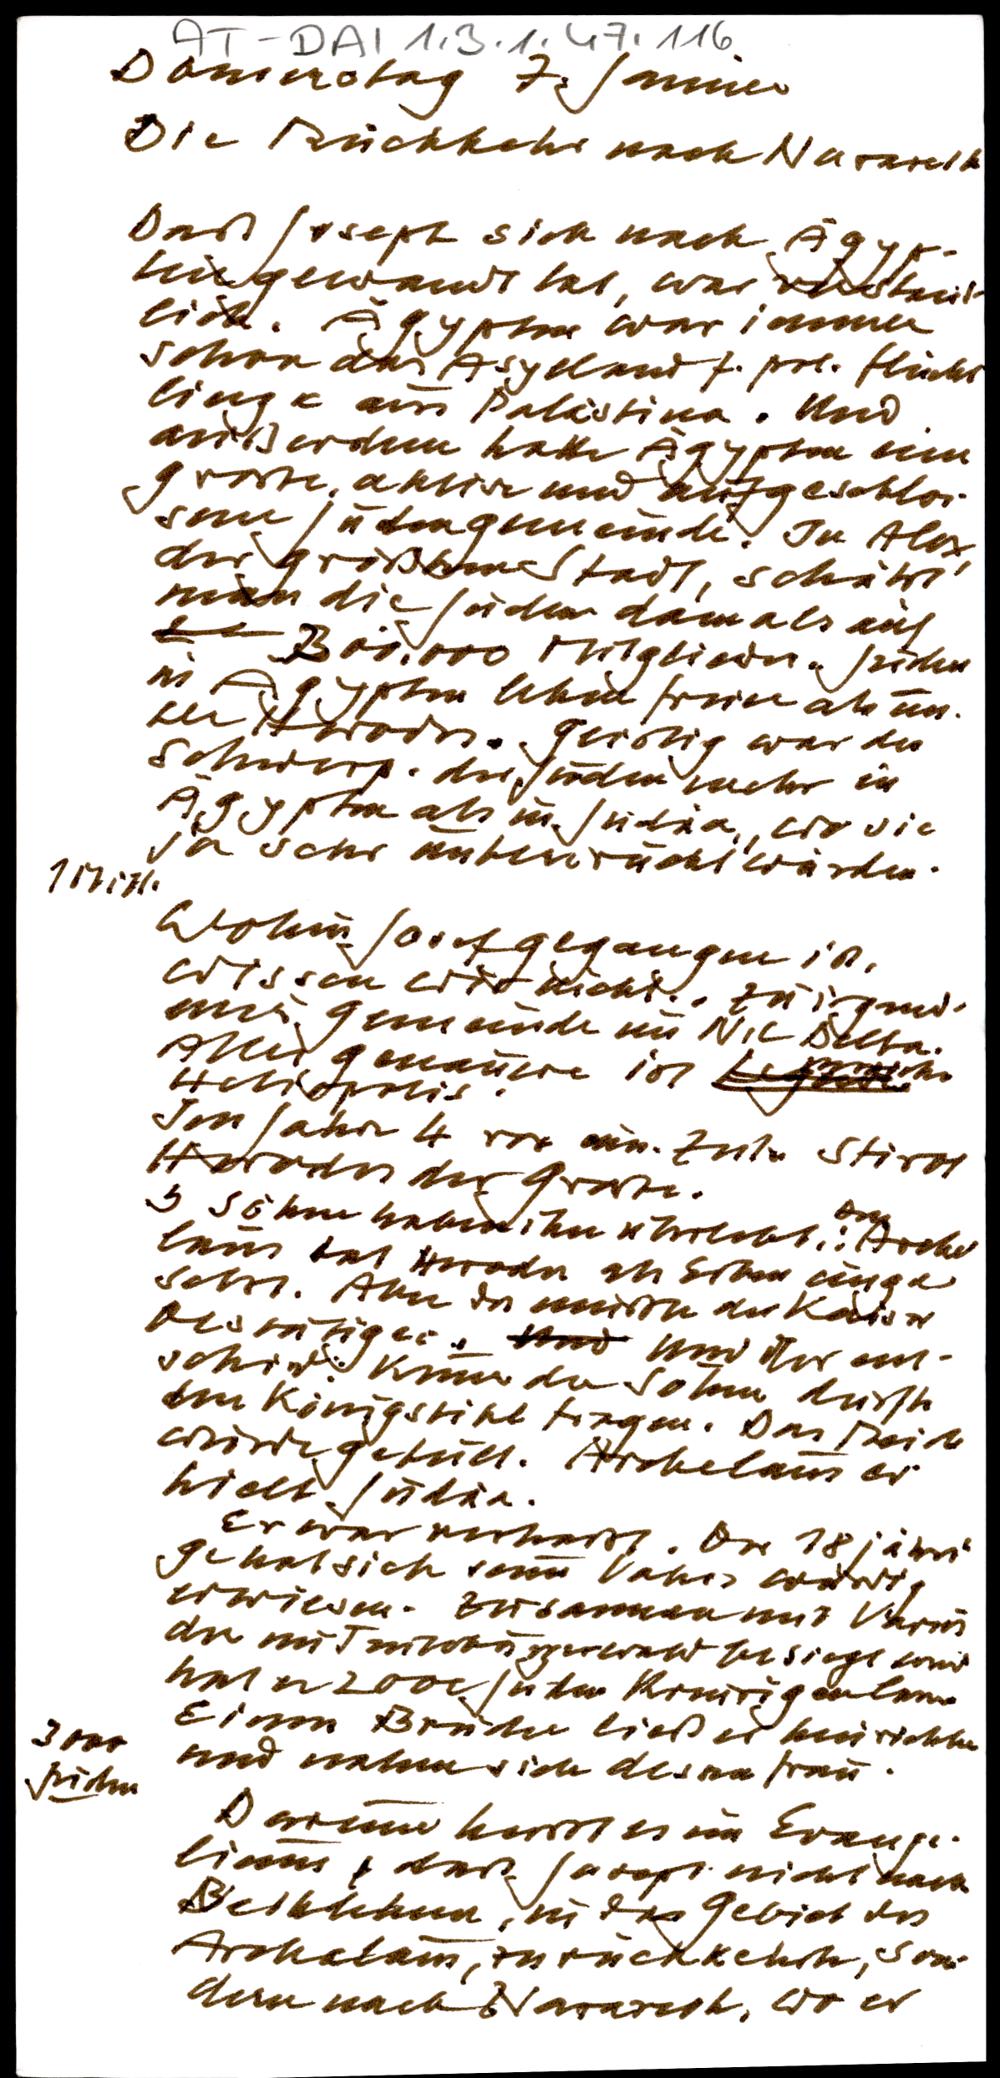 AT-DAI 1.3.1.47.116
Donnerstag 7. Jänner
Die Rückkehr nach Nazareth
Daß Joseph sich nach Ägyp-
ten gewandt hat, war verständ-
lich. Ägypten war immer
schon das Asylland f. pol. Flücht
linge aus Palästina. Und
außerdem hatte Ägypten eine
große, aktive und aufgeschlos-
sene Judengemeinde. In Alex,
der größten Stadt, schätzt
man die Juden damals auf
300.000 Mitglieder. Juden
in Ägypten lebten freier als un-
ter Herodes. Geistig war der
Schwerp. der Juden mehr in
Ägypten als in Judäa, wo sie
ja sehr unterdrückt wurden.
1 Mill.
Wohin Josef gegangen ist,
wissen wir nicht. Zu irgend-
einer Gemeinde im Nil Delta.
Alles genauere ist
Heliopolis.
Im Jahre 4 vor uns. Zeitr. stirbt
Herodes der Große.
5 Söhne haben ihn überlebt. Den Arche
laus hat Herodes als Erben einge
setzt. Aber das mußte der Kaiser
bestätigen. Und Und der ent-
schied: Keiner der Söhne durfte
den Königstitel tragen. Das Reich
wurde geteilt. Archelaus er
hielt Judäa.
Er war verhaßt. Der 18 jähri
ge hat sich seines Vaters würdig
erwiesen. Zusammen mit Varus
der im Teutoburgerwald besiegt wird
hat er 2000 Juden kreuzigen lassen
Einen Bruder ließ er hinrichten
und nahm sich dessen Frau.
3000
Juden
Darum heißt es im Evange-
lium, daß Joseph nicht nach
Bethlehem, in das Gebiet des
Archelaus, zurückkehrte, son-
dern nach Nazareth, wo er